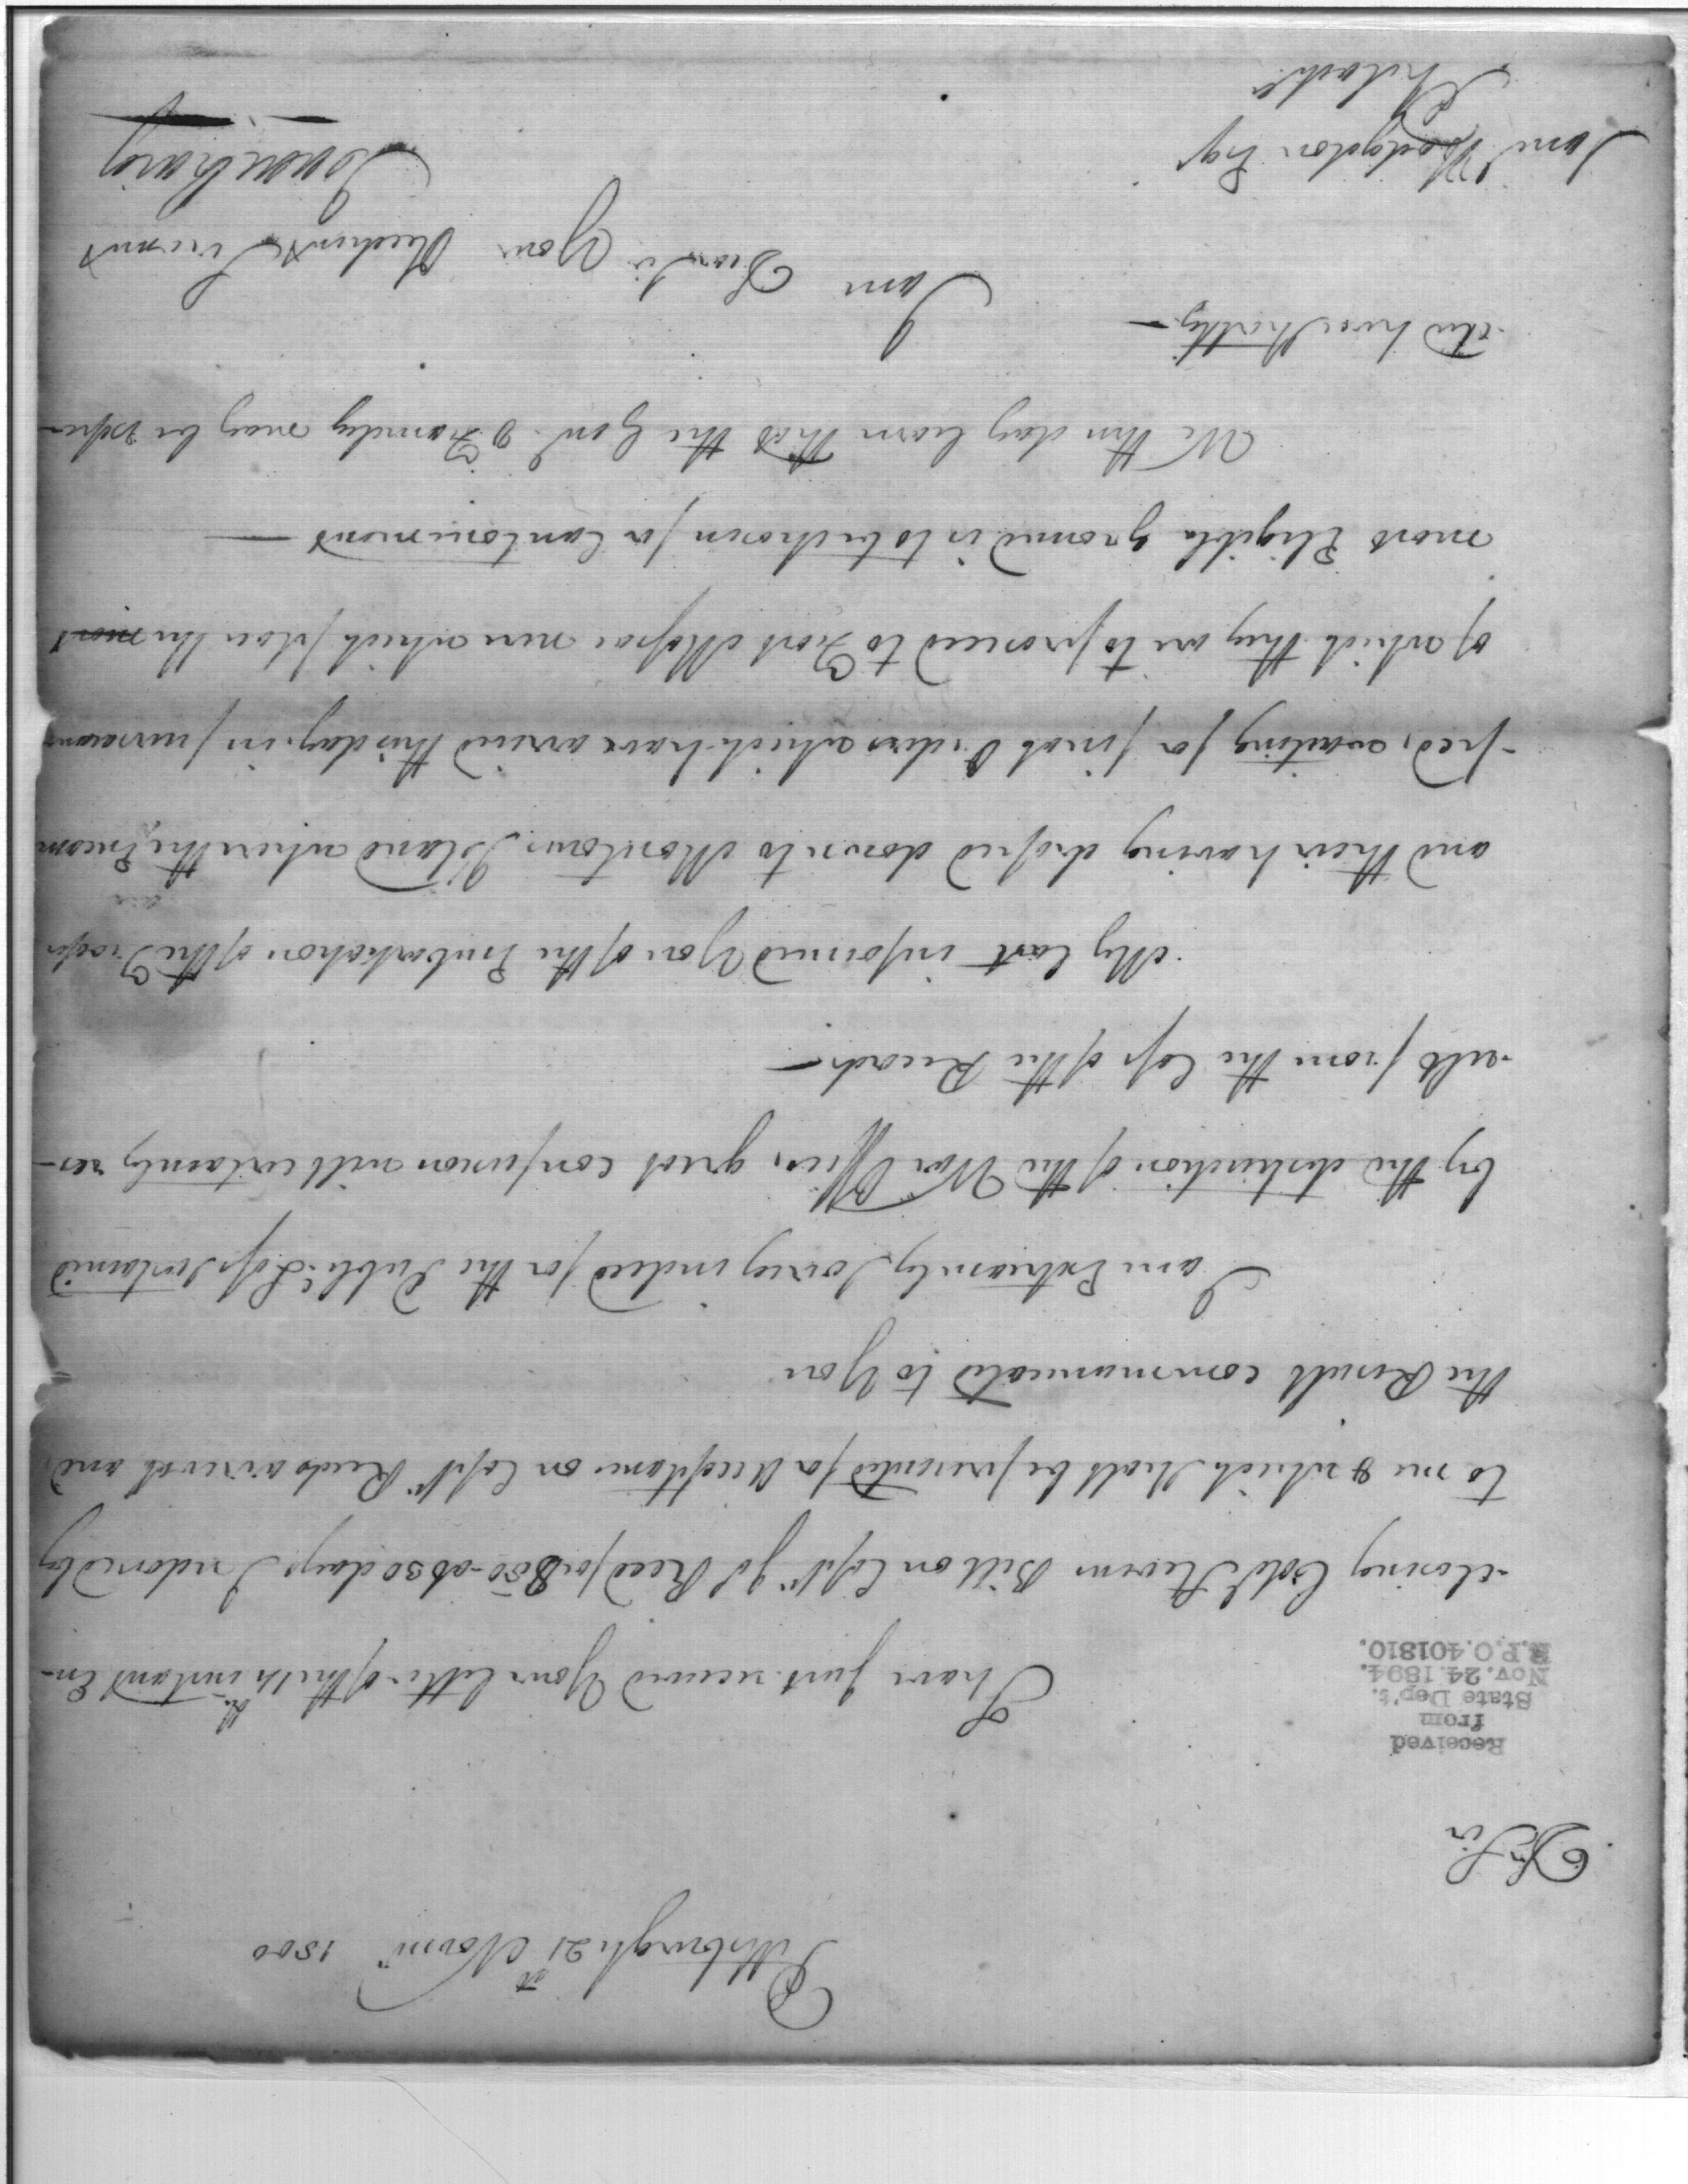 Pittsburgh 21st Novm 1800
Dr Sir
Received
from
State Dep't.
Nov. 24. 1894.
R.P.O. 401810.
I have just received Your letter of the 14th instant En-
-closing Cold Stevens Bill on Capt Js Reed for $50- at 30 days Indorsed by
to me & which shall be presented for Acceptance on Capt Reeds arrival and
the Result communicated to You
I am Extreamly Sorry indeed for the Public Loss Sustained
by the distruction of the War Office, great confusion will certainly res-
-ult from the Loss of the Records—
My last informed You of the Embarkation of the Troops
and their having droped down to Montours Island where they are Encam
-ped, waiting for final Orders which have arrived this day, in pursuance
of which they are to proceed to Fort Massac near which place the most
most Eligible ground is to be chosen for Cantonment —
We this day learn that the Genl & Family may be expec-
-ted here shortly—
I am Dear Sir Your Obedient Servant
Isaac Craig
Saml Hodgdon Esqr
Philada